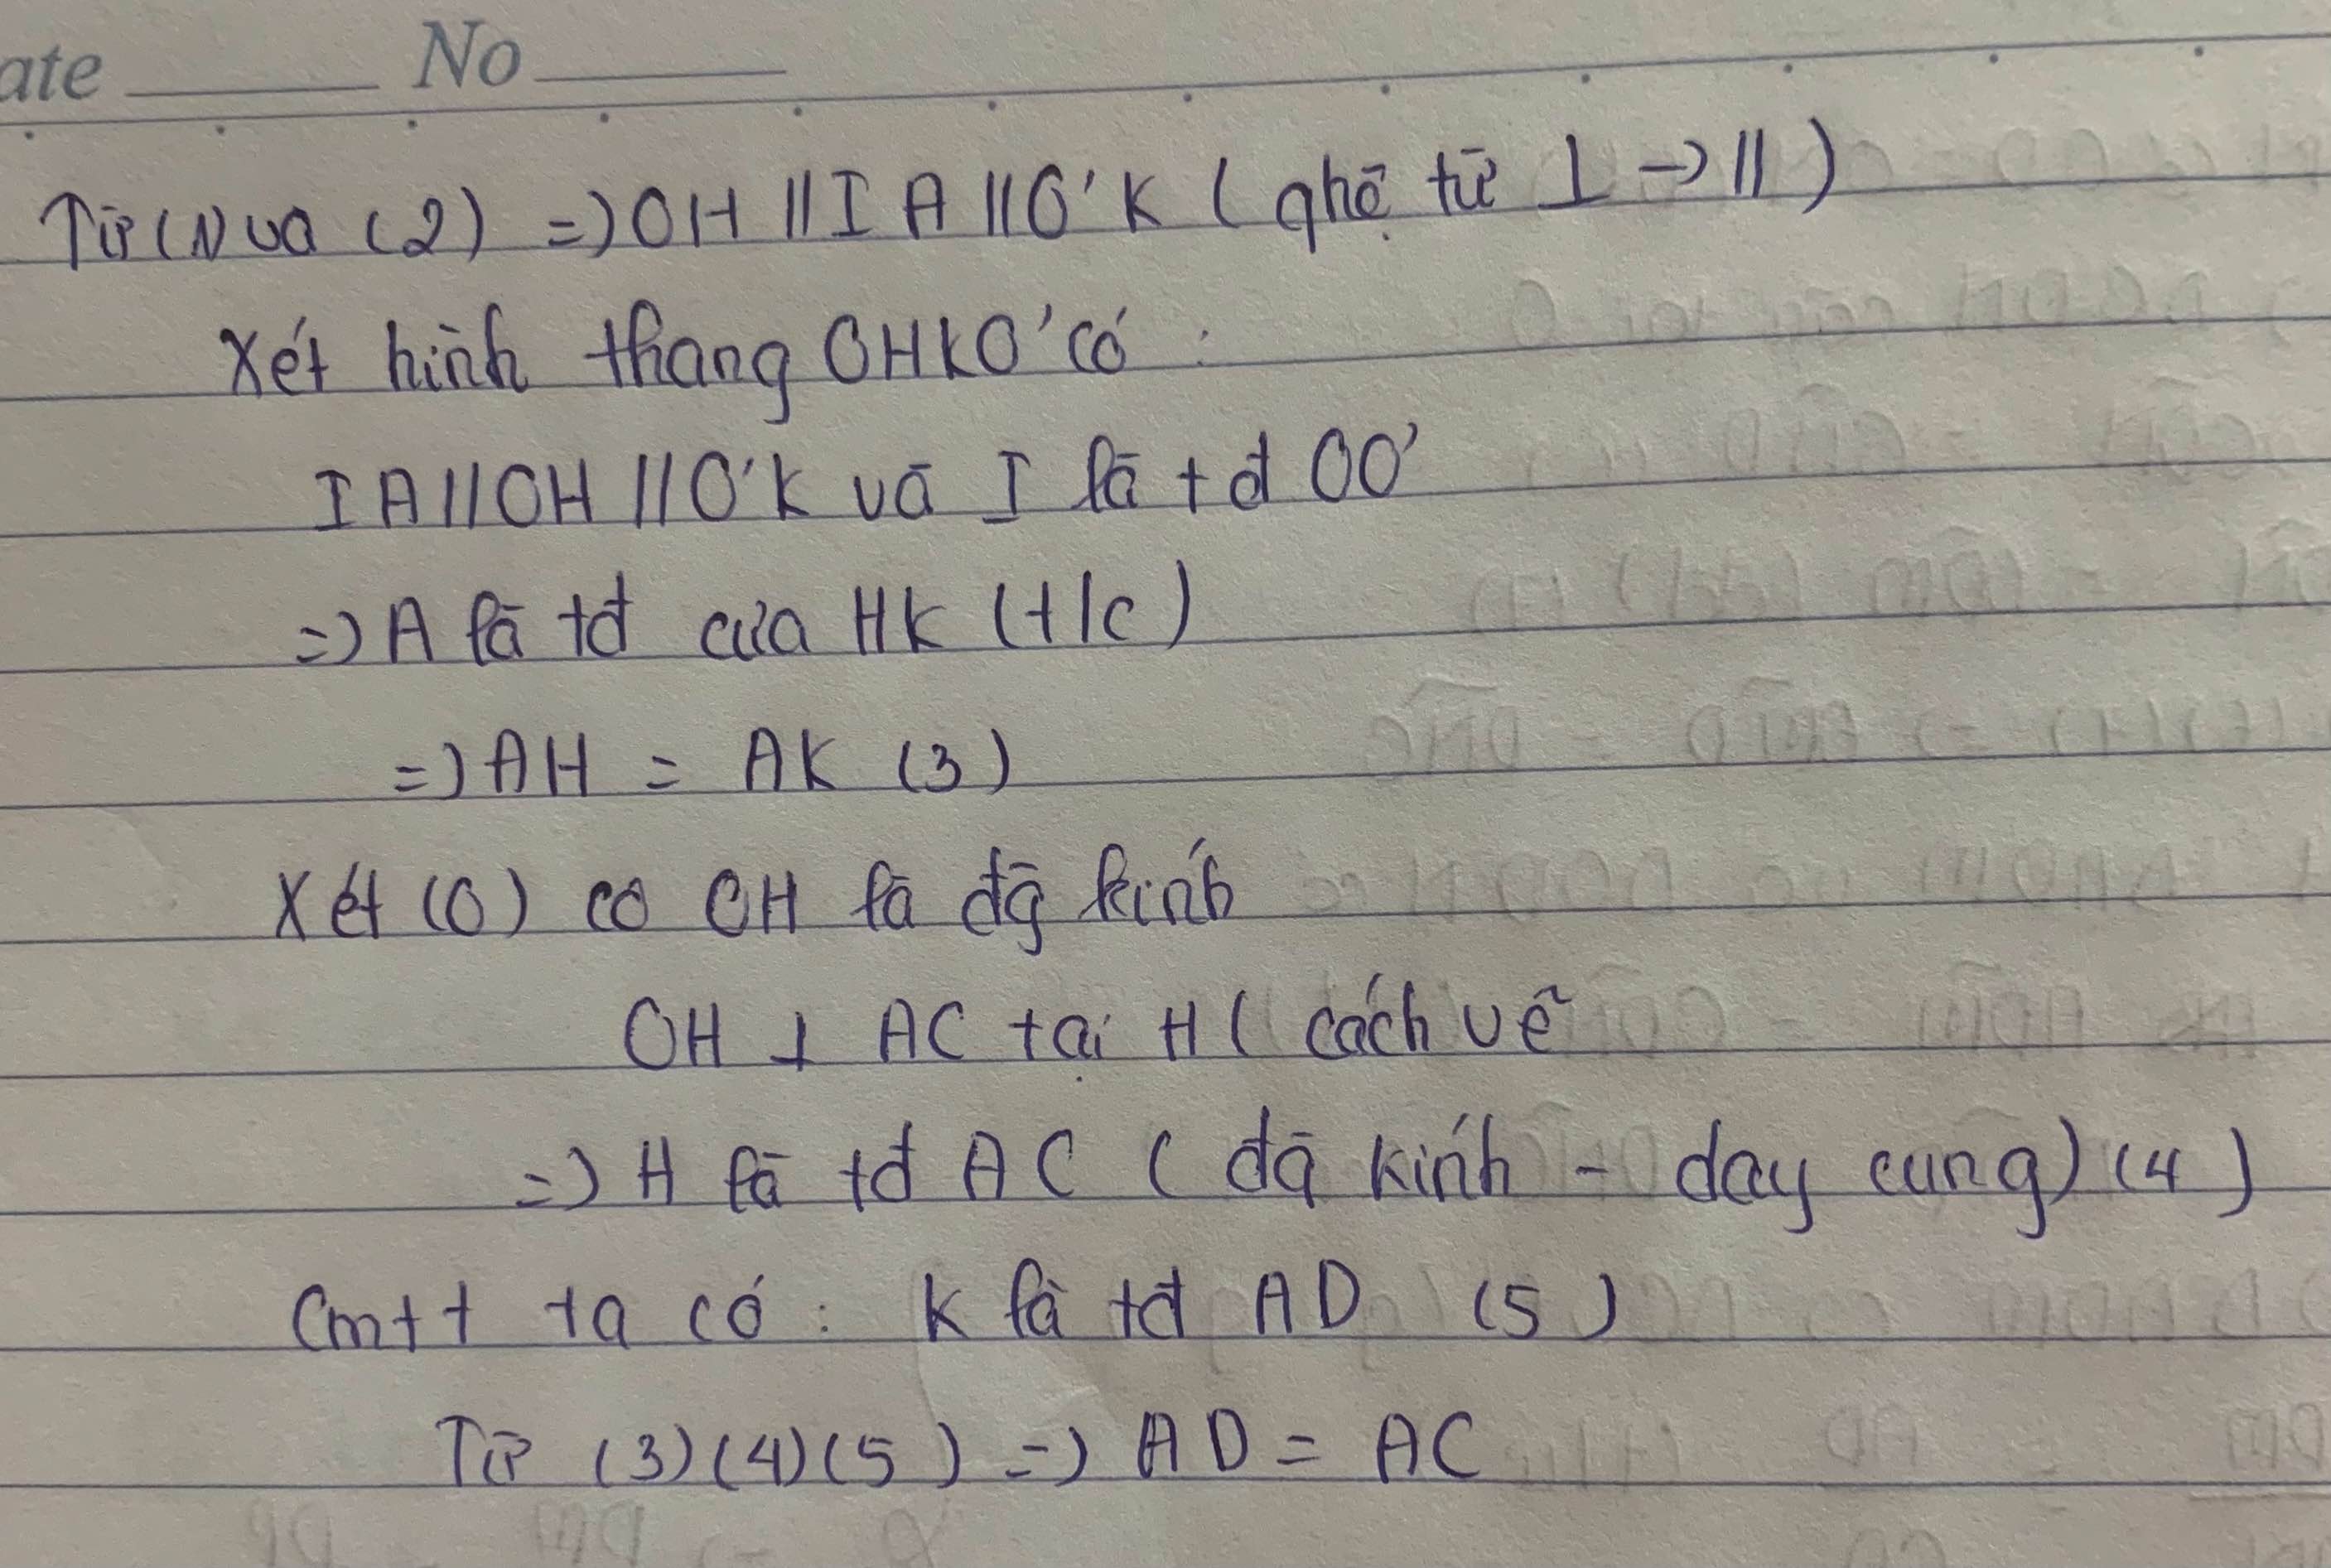 ate No
Từ (1) và (2) => OH // IA // O'K ( qhệ từ ⊥ → // )
Xét hình thang OHKO' có :
IA // OH // O'K và I là tđ OO'
=> A là tđ của HK (t/c)
=> AH = AK (3)
Xét (O) có OH là đg kính
OH ⊥ AC tại H ( cách vẽ
=> H là tđ AC ( đg kính - day cung) (4)
Cmtt ta có : K là tđ AD (5)
Từ (3)(4)(5) => AD = AC